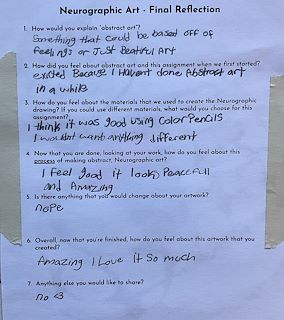 Neurographic Art - Final Reflection
1. How would you explain "abstract art"?
Something that could be baised off of
feelings or Just Beatiful Art
2. How did you feel about abstract art and this assignment when we first started?
exited Because I Havent done Abstract art
in a while
3. How do you feel about the materials that we used to create the Neurographic
drawing? If you could use different materials, what would you choose for this
assignment?
I think it was good using Color Pencils
I wouldnt want anything different
4. Now that you are done, looking at your work, how do you feel about this
process of making abstract, Neurographic art?
I feel good it looks Peacefull
and Amazing
5. Is there anything that you would change about your artwork?
nope
6. Overall, now that you're finished, how do you feel about this artwork that you
created?
Amazing I Love it So much
7. Anything else you would like to share?
no <3